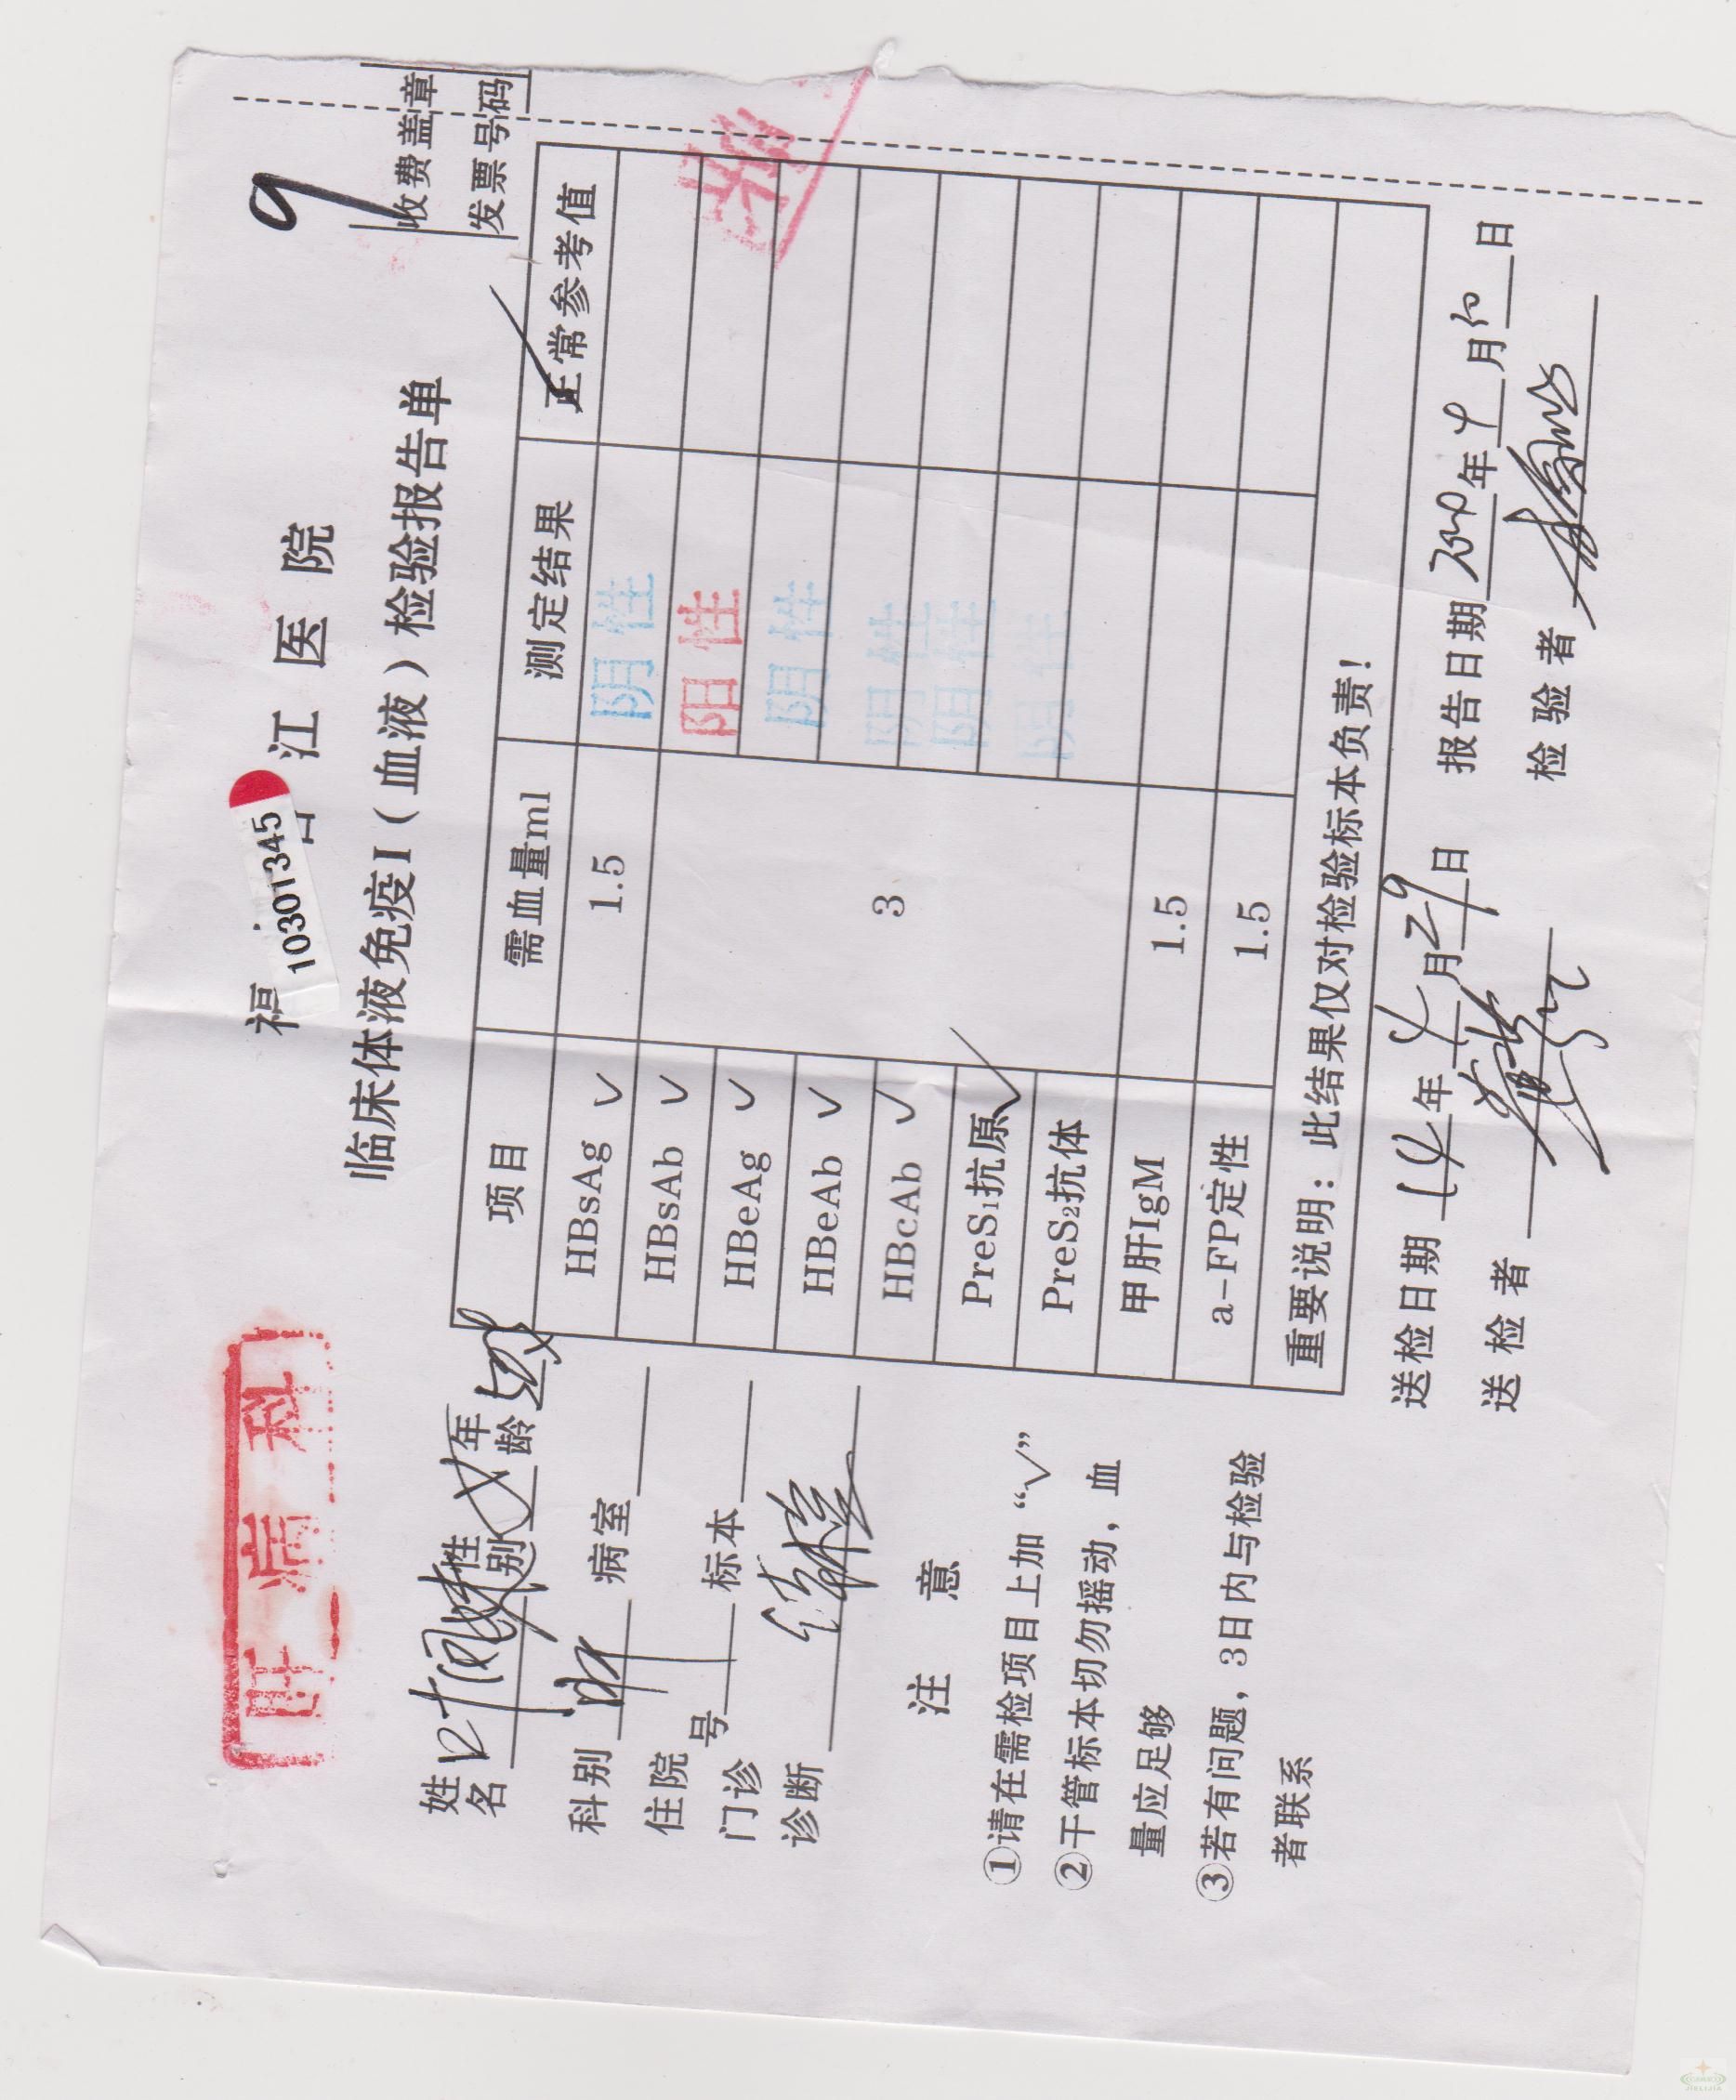 肝病科
9
福 江医院
10301345
临床体液免疫I(血液)检验报告单
收费盖章
发票号码
姓名 叶 性别 女 年龄
科别 肝 病室
住院
门诊 号 标本
诊断
注 意
①请在需检项目上加“√”
②干管标本切勿摇动,血
量应足够
③若有问题,3日内与检验
者联系
项目 需血量ml 测定结果 正常参考值
HBsAg √ 1.5 阴性
HBsAb √ 3 阳性
HBeAg √ 阴性
HBeAb √ 阴性
HBcAb √ 阴性
PreS1抗原 √ 阴性
PreS2抗体
甲肝IgM 1.5
a-FP定性 1.5
重要说明:此结果仅对检验标本负责!
送检日期 14 年 4 月 29 日 报告日期 年 4 月 30 日
送检者 检验者